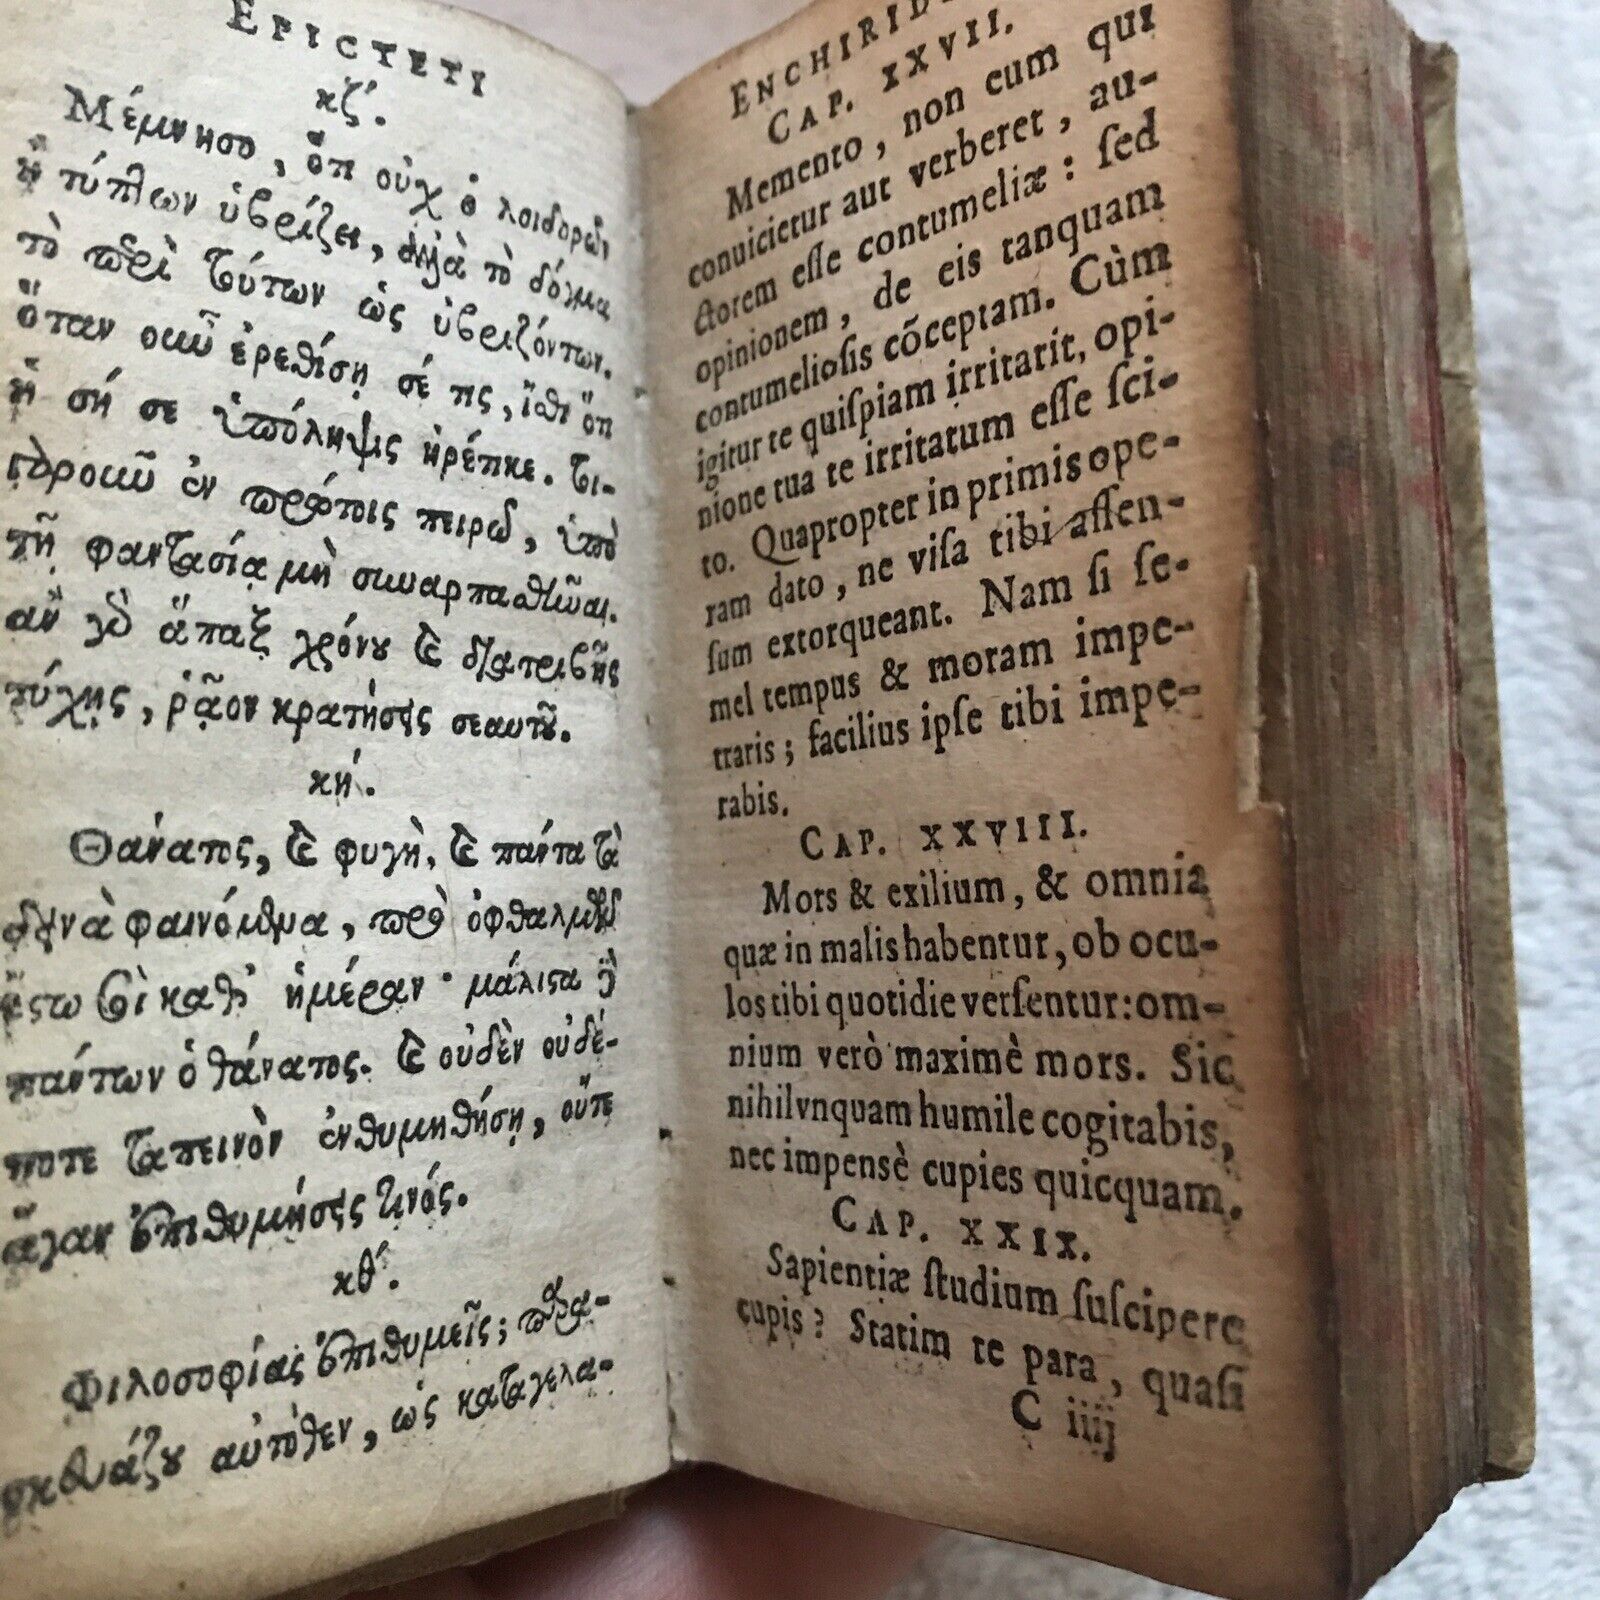 EPICTETI
κζʹ.
Μέμνησο, ὅτι οὐχ ὁ λοιδορῶν
ἢ τύπτων ὑβρίζει, ἀλλὰ τὸ δόγμα
τὸ περὶ τούτων ὡς ὑβριζόντων.
ὅταν οὖν ἐρεθίσῃ σέ τις, ἴσθι ὅτι
ἡ σή σε ὑπόληψις ἠρέθικε. τοι-
γαροῦν ἐν πρώτοις πειρῶ, ὑπὸ
τῆς φαντασίας μὴ συναρπασθῆναι.
ἂν γὰρ ἅπαξ χρόνου καὶ διατριβῆς
τύχῃς, ῥᾷον κρατήσεις σεαυτοῦ.
κηʹ.
Θάνατος, καὶ φυγὴ, καὶ πάντα τὰ
δεινὰ φαινόμενα, πρὸ ὀφθαλμῶν
ἔστω σοι καθ’ ἡμέραν· μάλιστα δὲ
πάντων ὁ θάνατος. καὶ οὐδὲν οὐδέ-
ποτε ταπεινὸν ἐνθυμηθήσῃ, οὔτε
ἄγαν ἐπιθυμήσεις τινός.
κθʹ.
Φιλοσοφίας ἐπιθυμεῖς; παρα-
σκευάζου αὐτόθεν, ὡς καταγελα-
ENCHIRIDI
CAP. XXVII.
Memento, non eum qui
conuicietur aut verberet, au-
ctorem eſſe contumeliæ: ſed
opinionem, de eis tanquam
contumelioſis cõceptam. Cùm
igitur te quiſpiam irritarit, opi-
nione tua te irritatum eſſe ſci-
to. Quapropter in primis ope-
ram dato, ne viſa tibi aſſen-
ſum extorqueant. Nam ſi ſe-
mel tempus & moram impe-
traris; facilius ipſe tibi impe-
rabis.
CAP. XXVIII.
Mors & exilium, & omnia
quæ in malis habentur, ob ocu-
los tibi quotidie verſentur: om-
nium verò maximè mors. Sic
nihil vnquam humile cogitabis,
nec impensè cupies quicquam.
CAP. XXIX.
Sapientiæ ſtudium ſuſcipere
cupis? Statim te para, quaſi
C iiij